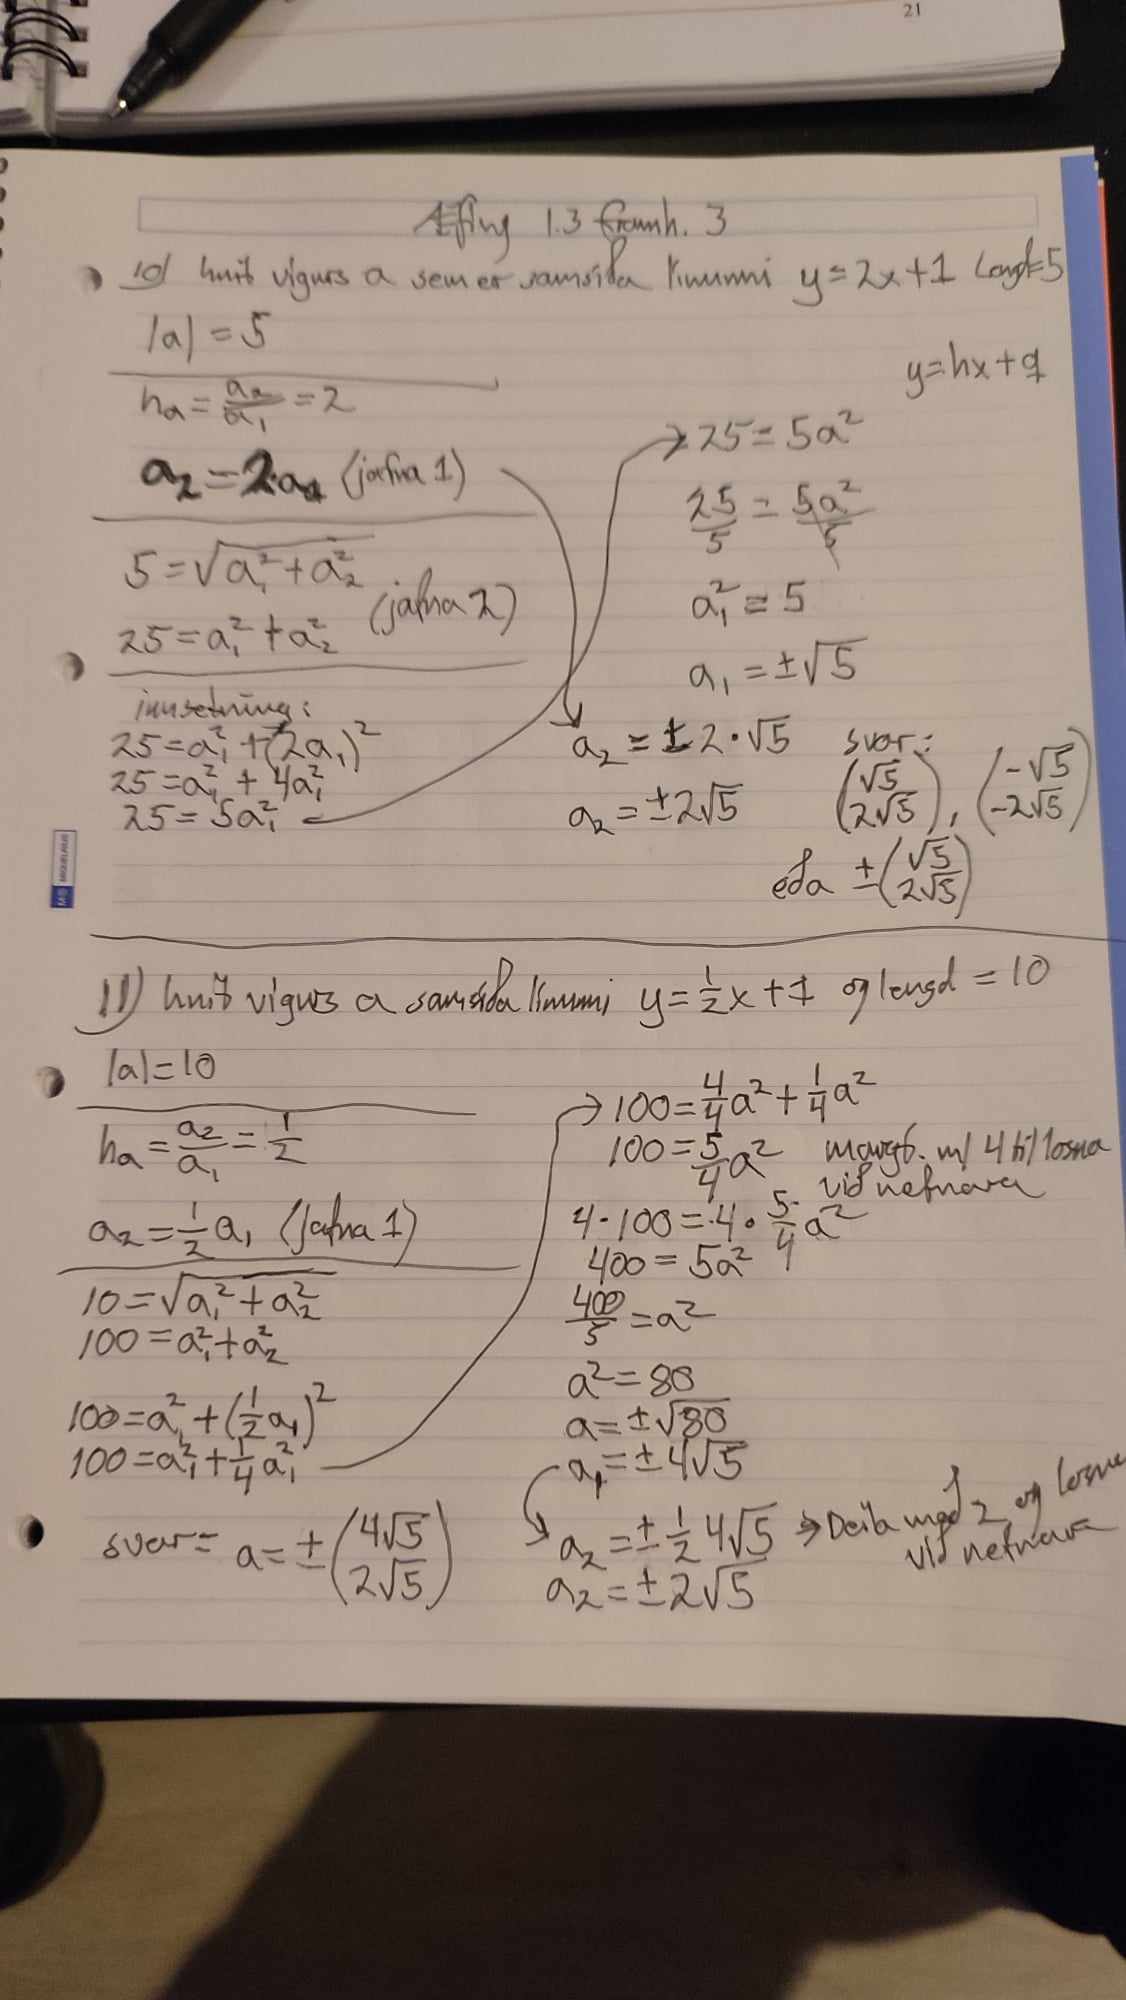 21
Æfing 1.3 framh. 3
10) hnit vigurs a sem er samsíða línunni y=2x+1 Lengd=5
|a| = 5
y=hx+q
hₐ = a₂/a₁ = 2
a₂ = 2·a₁ (jafna 1)
5 = √(a₁² + a₂²)
25 = a₁² + a₂² (jafna 2)
innsetning:
25 = a₁² + (2a₁)²
25 = a₁² + 4a₁²
25 = 5a₁²
→ 25 = 5a²
25/5 = 5a²/5
a₁² = 5
a₁ = ±√5
a₂ = ±2·√5
a₂ = ±2√5
svar:
(√5 2√5), (-√5 -2√5)
eða ±(√5 2√5)
11) hnit vigurs a samsíða línunni y=½x+1 og lengd = 10
|a| = 10
hₐ = a₂/a₁ = 1/2
a₂ = ½a₁ (jafna 1)
10 = √(a₁² + a₂²)
100 = a₁² + a₂²
100 = a₁² + (½a₁)²
100 = a₁² + ¼a₁²
→ 100 = 4/4a² + ¼a²
100 = 5/4a² margf. m/ 4 til losna
við nefnara
4·100 = 4·5/4a²
400 = 5a²
400/5 = a²
a² = 80
a = ±√80
a₁ = ±4√5
a₂ = ±½4√5 → Deila með 2 og losna
við nefnara
a₂ = ±2√5
svar= a = ±(4√5 2√5)